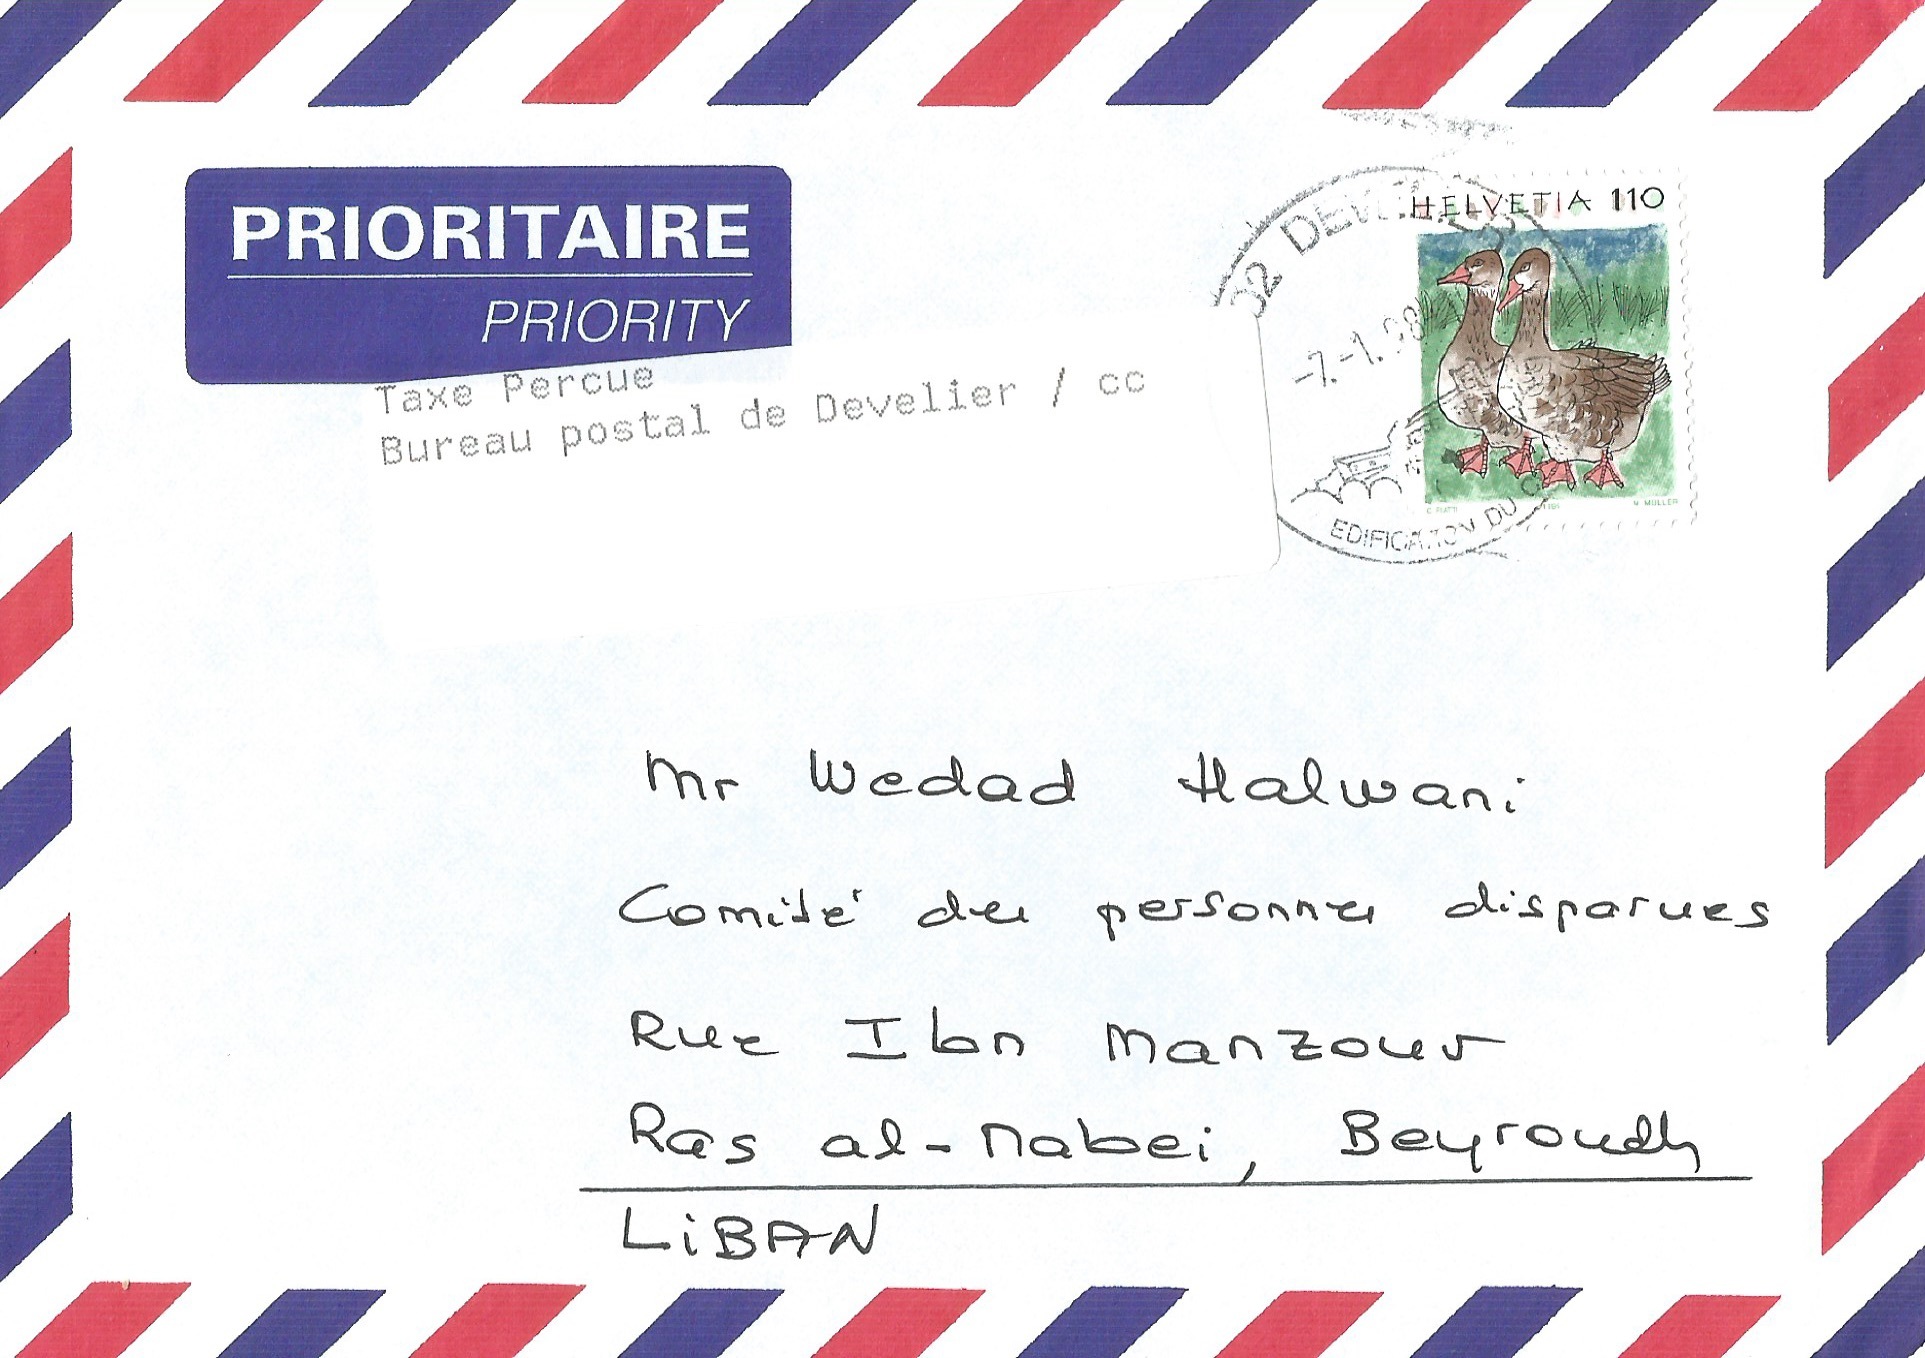 PRIORITAIRE
PRIORITY
Taxe Percue
Bureau postal de Develier / cc
HELVETIA 110
-7.-1.98
EDIFICATION DU
M. MÜLLER
Mr Wedad Halwani
Comité des personnes disparues
Rue Ibn Manzour
Ras al-Nabei, Beyrouth
LiBAN